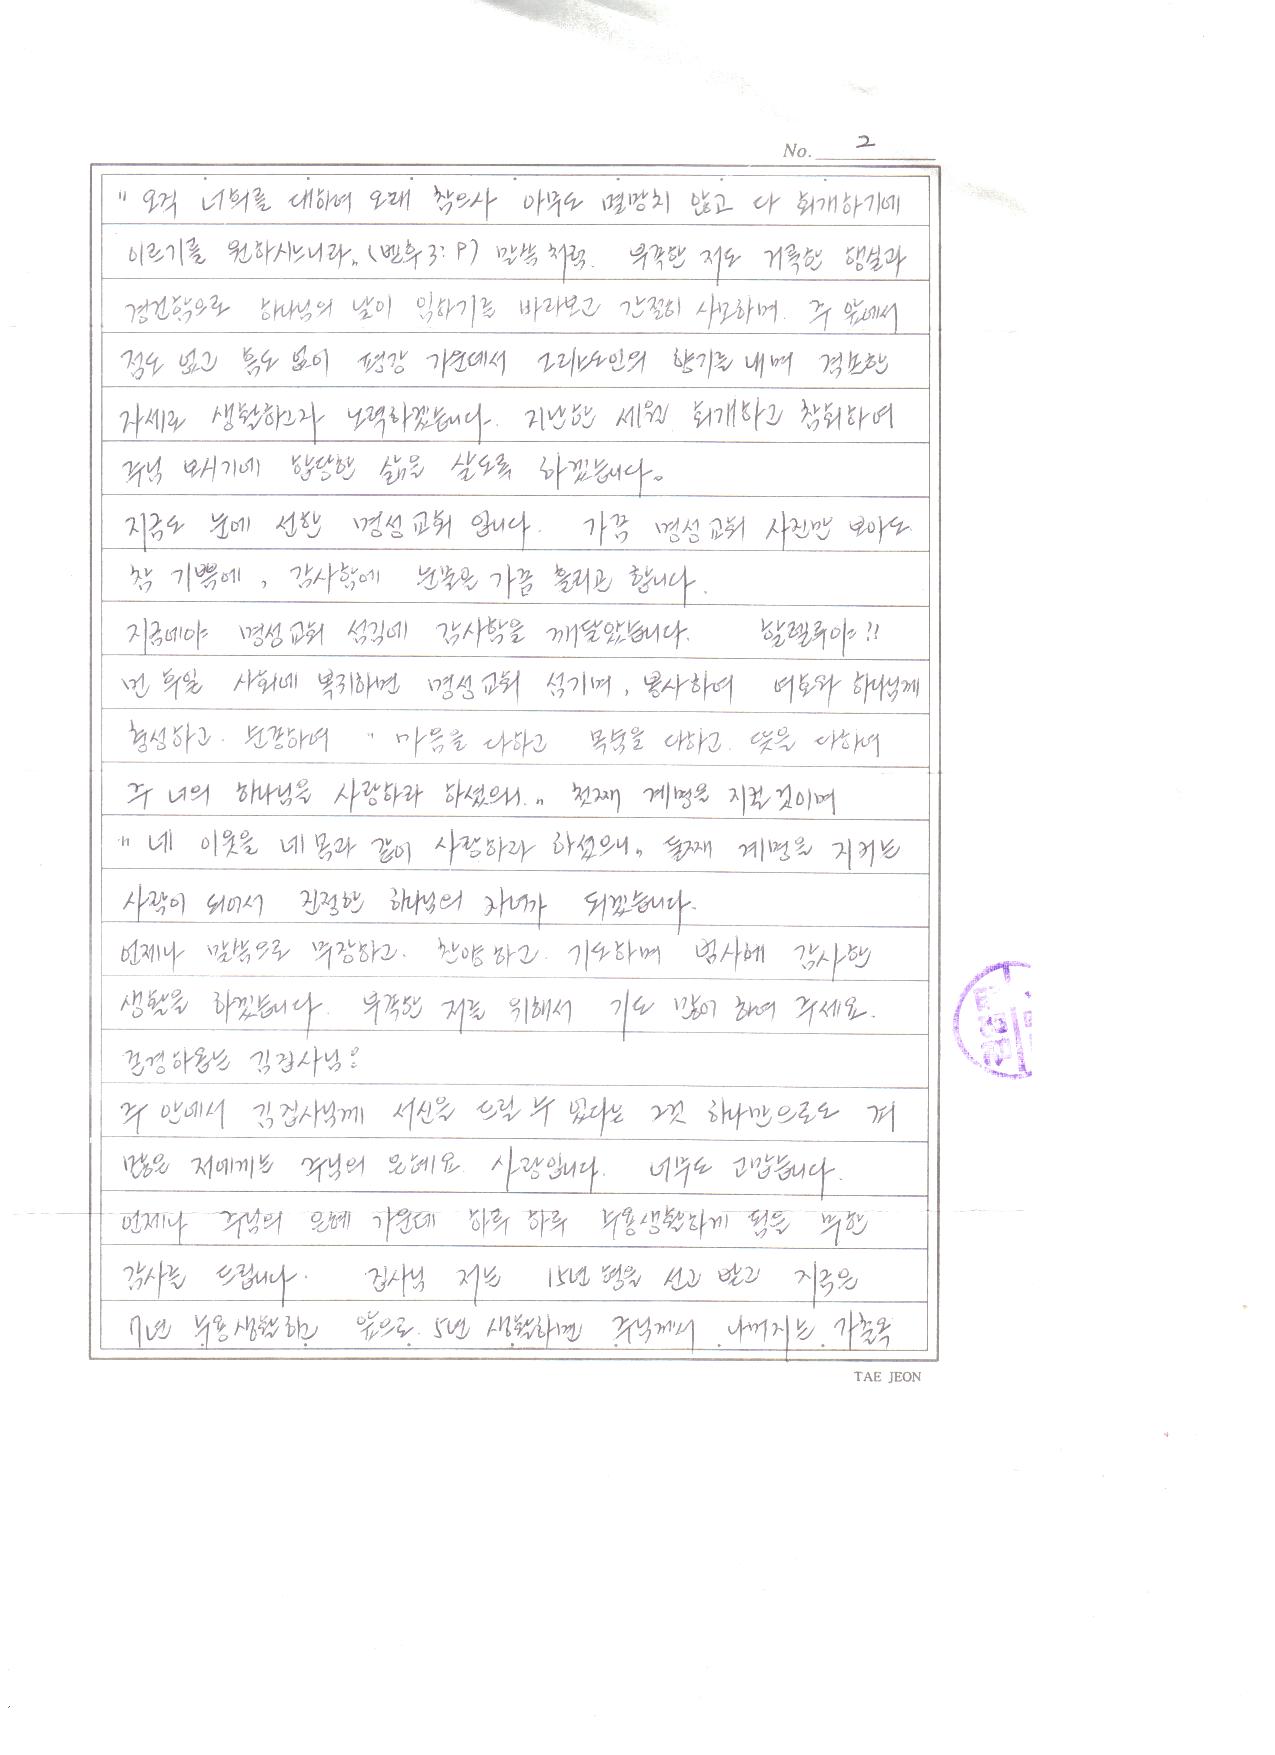 No. 2
" 오직 너희를 대하여 오래 참으사 아무도 멸망치 않고 다 회개하기에
이르기를 원하시느니라„ (벧후 3: 9) 말씀처럼. 부족한 저도 거룩한 행실과
경건함으로 하나님의 날이 임하기를 바라보고 간절히 사모하며. 주 앞에서
점도 없고 흠도 없이 평강 가운데서 그리스도인의 향기를 내며 겸손한
자세로 생활하고자 노력하겠습니다. 지난한 세월 회개하고 참회하여
주님 보시기에 합당한 삶을 살도록 하겠습니다.
지금도 눈에 선한 명성교회 입니다. 가끔 명성교회 사진만 보아도
참 기쁨에, 감사함에 눈물은 가끔 흘리곤 합니다.
지금에야 명성교회 섬김에 감사함을 깨달았습니다. 할렐루야!!
먼 훗일 사회에 복귀하면 명성교회 섬기며, 봉사하여 여호와 하나님께
충성하고. 순종하여 " 마음을 다하고 목숨을 다하고. 뜻을 다하여
주 너의 하나님을 사랑하라 하셨으니„ 첫째 계명을 지킬 것이며
" 네 이웃을 네 몸과 같이 사랑하라 하셨으니„ 둘째 계명을 지키는
사람이 되어서 진정한 하나님의 자녀가 되겠습니다.
언제나 말씀으로 무장하고. 찬양하고. 기도하며 범사에 감사한
생활을 하겠습니다. 부족한 저를 위해서 기도 많이 하여 주세요.
존경하옵는 김집사님!
주 안에서 김집사님께 서신을 드릴 수 있다는 그것 하나만으로도 죄
많은 저에게는 주님의 은혜요 사랑입니다. 너무도 고맙습니다.
언제나 주님의 은혜 가운데 하루 하루 수용생활하게 됨을 무한
감사를 드립니다. 집사님 저는 15년 형을 선고 받고 지금은
7년 수용생활하고 앞으로 5년 생활하면 주님께서 나머지는 가출옥
TAE JEON